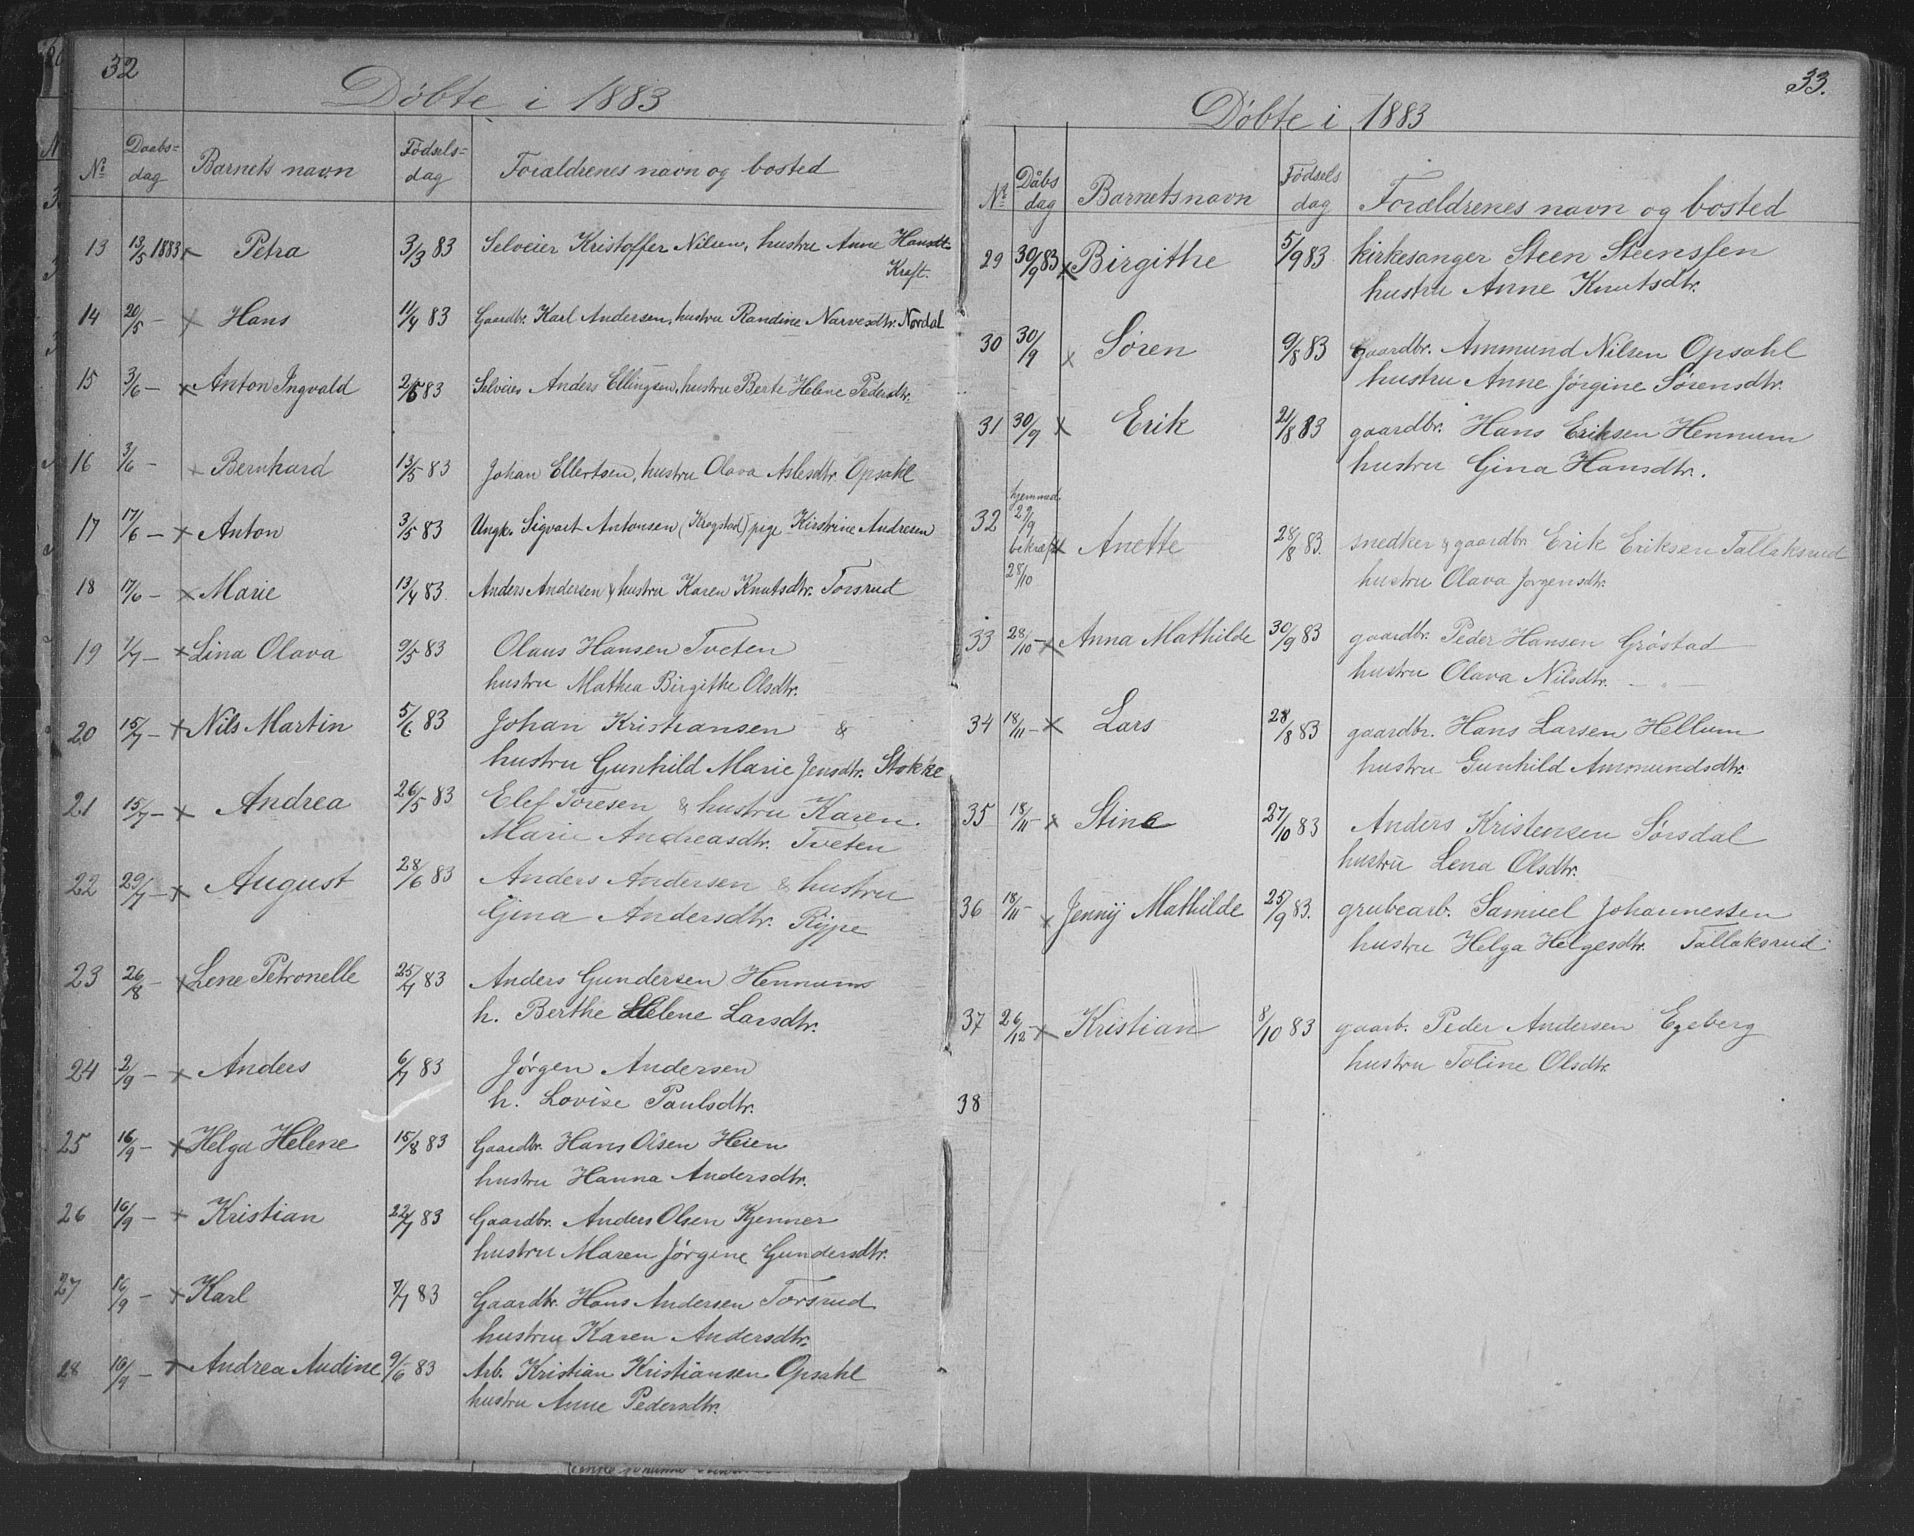 32
Döbte i 1883
No Daabs= dag Barnets navn Födsels= dag Forældrenes navn og bosted
13 13/5 1883 x Petra 3/3 83 Selveier Kristoffer Nilsen, hustru Anne Hansdt.
Kraft.
14 20/5 – x Hans 11/4 83 Gaardbr. Karl Andersen, hustru Randine Narvesdtr. Nordal
15 3/6 – x Anton Ingvald 83 Selveier Anders Ellingsen, hustru Berte Helene Pedersdtr.
16 3/6 – x Bernhard 13/5 83 Johan Ellertsen, hustru Olava Aslesdtr. Opsahl
17 17/6 – x Anton 3/5 83 Ungk. Sigvart Antonsen (Krogstad) pige Kirstine Andresen
18 17/6 – x Marie 13/4 83. Anders Andersen & hustru Karen Knutsdtr. Torsrud
19 1/7 – x Lina Olava 9/5 83 Olaus Hansen Tveten
hustru Mathea Birgithe Olsdtr.
20 15/7 – x Nils Martin 5/6 83 Johan Kristiansen &
hustru Gunhild Marie Jensdtr. Stokke
21 15/7 – x Andrea 26/5 83 Elef Toresen & hustru Karen
Marie Andreasdtr. Tveten
22 29/7 – x August 28/6 83 Anders Andersen & hustru
Gina Andersdtr. Rype
23 26/8 – x Lene Petronelle 25/7 83 Anders Gundersen Hennum
h. Berthe Helene Larsdtr.
24 2/9 – x Anders 6/7 83 Jørgen Andersen
h. Lovise Paulsdtr.
25 16/9 – x Helga Helene 15/8 83 Gaardbr. Hans Olsen Heien
hustru Hanna Andersdtr.
26 16/9 – x Kristian 22/7 83 Gaardbr. Anders Olsen Kjenner
hustru Maren Jørgine Gundersdtr.
27 16/9 – x Karl 7/7 83 Gaardbr. Hans Andersen Torsrud
hustru Karen Andersdtr.
28 16/9 – x Andrea Audine 9/6 83 Arb. Kristian Kristiansen Opsahl
hustru Anne Pedersdtr.
33.
Döbte i 1883
No Dåbs dag Barnets navn Födsels dag Forældrenes navn og bosted
29 30/9 83 x Birgithe 5/9 83. kirkesanger Steen Steensen
hustru Anne Knutsdtr.
30 30/9 x Søren 9/8 83 Gaardbr. Ammund Nilsen Opsahl
hustru Anne Jørgine Sørensdtr.
31 30/9 x Erik 21/8 83 gaardbr. Hans Eriksen Hennum
hustru Gina Hansdtr.
hjemmed.
32 29/9 bekræft x Anette 28/8 83. snedker & gaardbr. Erik Eriksen Tallaksrud
28/10 hustru Olava Jorgensdtr.
33 28/10 – x Anna Mathilde 30/9 83 gaardbr. Peder Hansen Grøstad
hustru Olava Nilsdtr. – „ –
34 18/11 – x Lars 28/8 83 gaardbr. Hans Larsen Hellum
hustru Gunhild Ammundsdtr.
35 18/11 – x Stine 27/10 83 Anders Kristensen Sørsdal
hustru Lena Olsdtr.
36 18/11 – x Jenny Mathilde 25/9 83. grubearb. Samuel Johannessen
hustru Helga Helgesdtr. Tallaksrud
37 26/12 – x Kristian 8/10 83 gaarb. Peder Andersen Egeberg
hustru Toline Olsdtr.
38